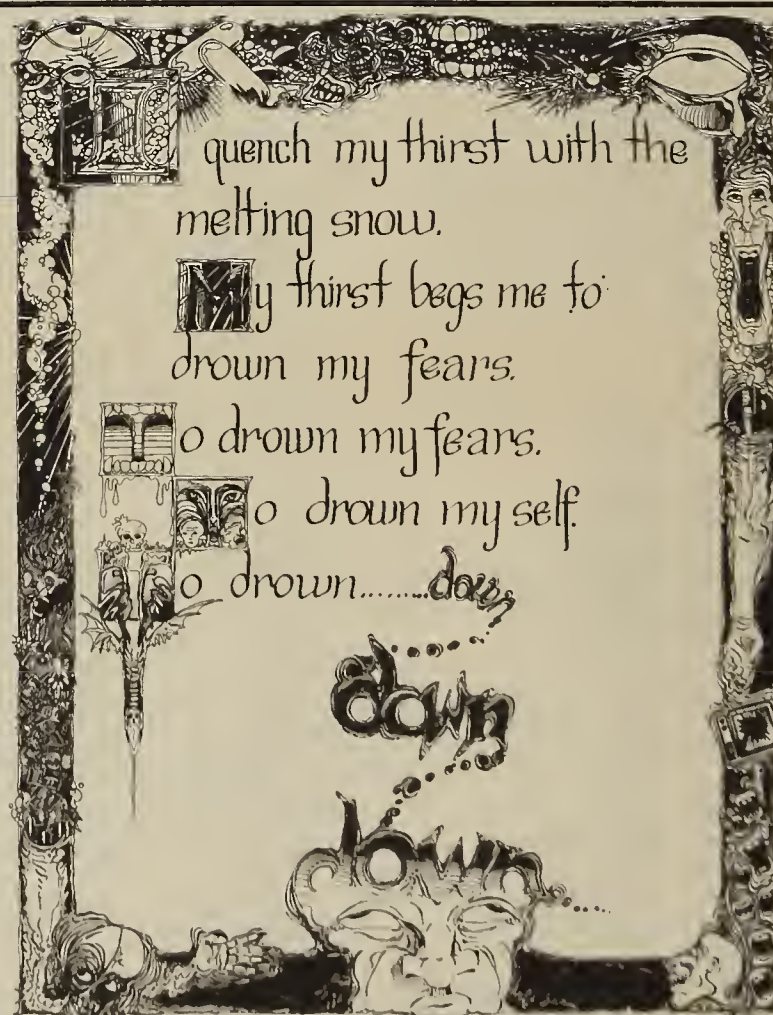 I quench my thirst with the
melting snow.
My thirst begs me to
drown my fears.
To drown my fears.
To drown my self.
To drown........down
down
down